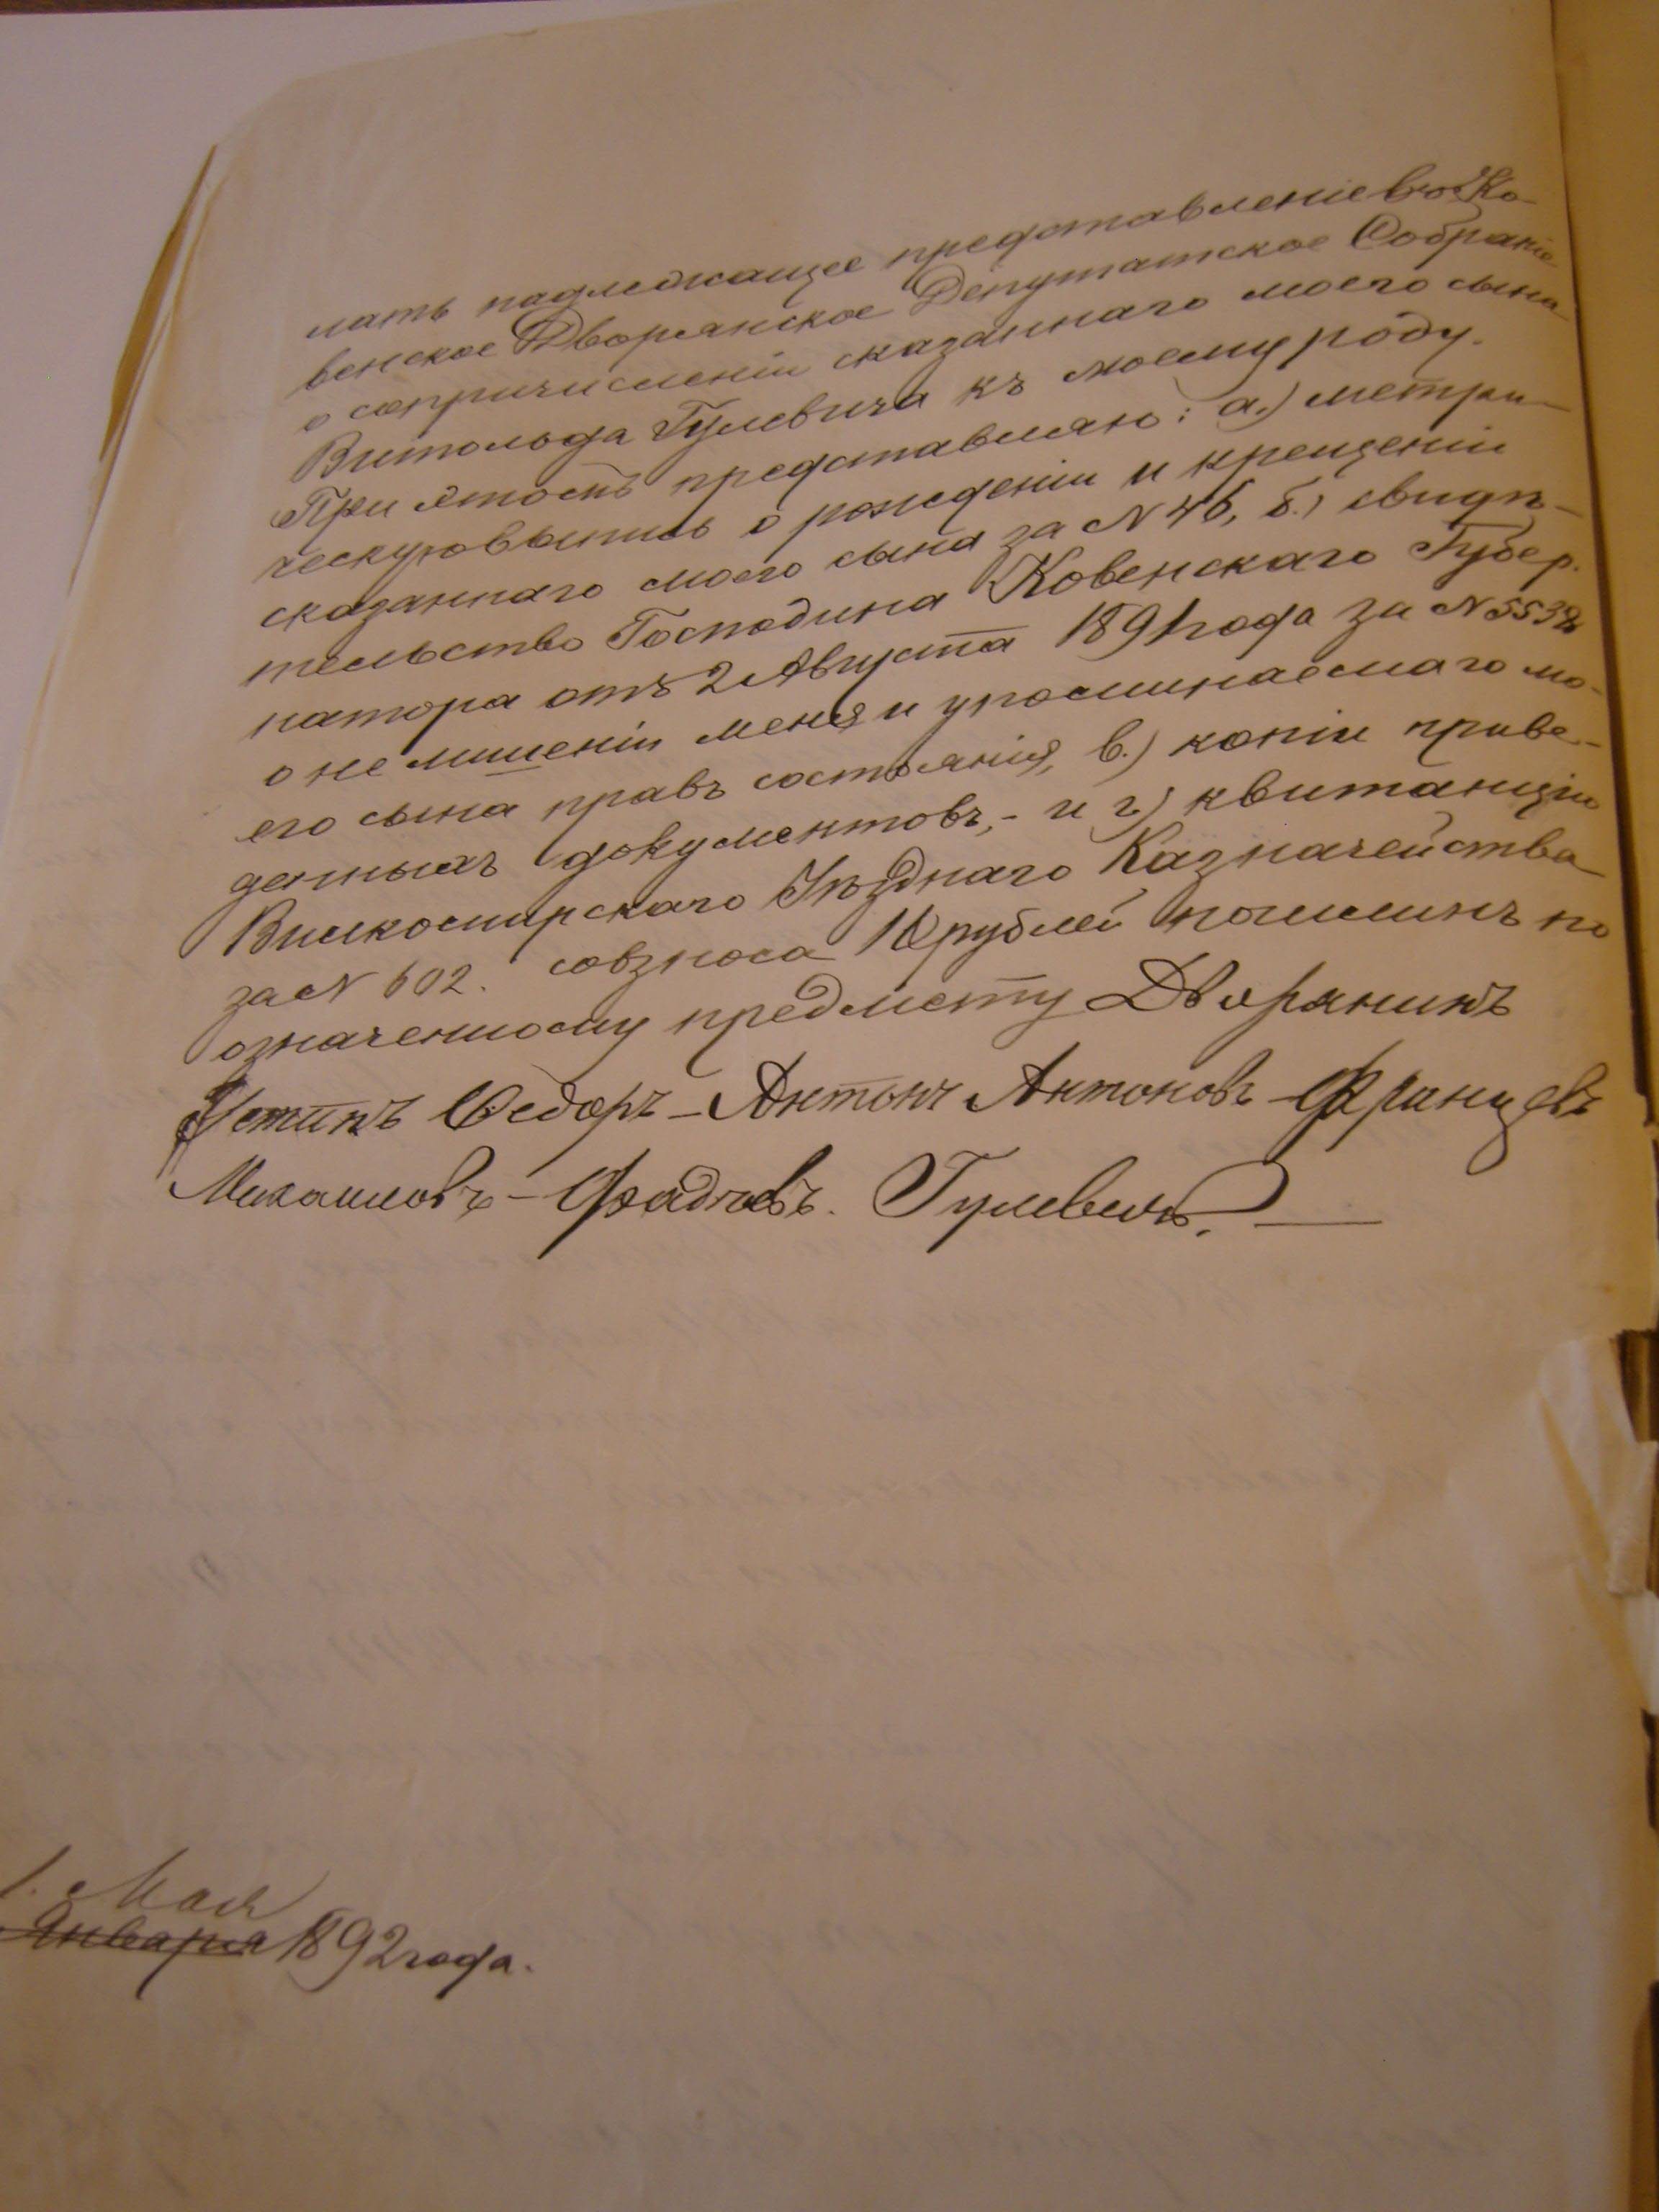 лать надлежащее представленіе въ Ко-
венское Дворянское Депутатское Собраніе
о сопричисленіи сказаннаго моего сына
Витольда Гулевича къ моему роду.
При этомъ представляю: а.) метри-
ческую выпись о рожденіи и крещеніи
сказаннаго моего сына за N 46, б.) свидѣ-
тельство Господина Ковенскаго Губер.
натора отъ 2 Августа 1891 года за N 5532
о не лишеніи меня и упоминаемаго мо-
его сына правъ состоянія, в.) копіи приве-
денныхъ документовъ,- и г.) квитанцію
Вилкомирскаго Уѣзднаго Казначейства
за N 602. совзноса 10 рублей пошлинъ по
означенному предмету Дворянинъ
Устинъ Ѳедоръ-Антонъ Антоновъ-Францовъ
Михаиловъ-Фадѣевъ. Гулевичъ.
1. Мая
Января 1892 года.